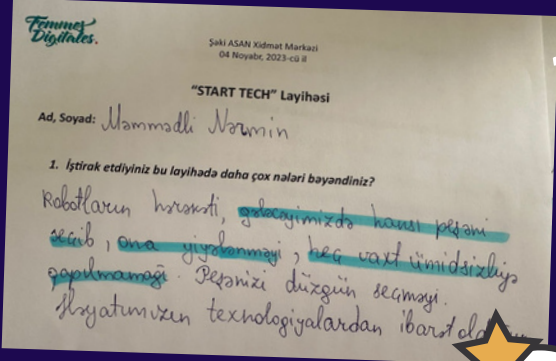 Femmes
Digitales.
Şəki ASAN Xidmət Mərkəzi
04 Noyabr, 2023-cü il
"START TECH" Layihəsi
Ad, Soyad: Məmmədli Nərmin
1. İştirak etdiyiniz bu layihədə daha çox nələri bəyəndiniz?
Robotların hərəkəti, gələcəyimizdə hansı peşəni
seçib, ona yiyələnməyi, heç vaxt ümidsizliyə
qapılmamağı. Peşənizi düzgün seçməyi.
Həyatımızın texnologiyalardan ibarət